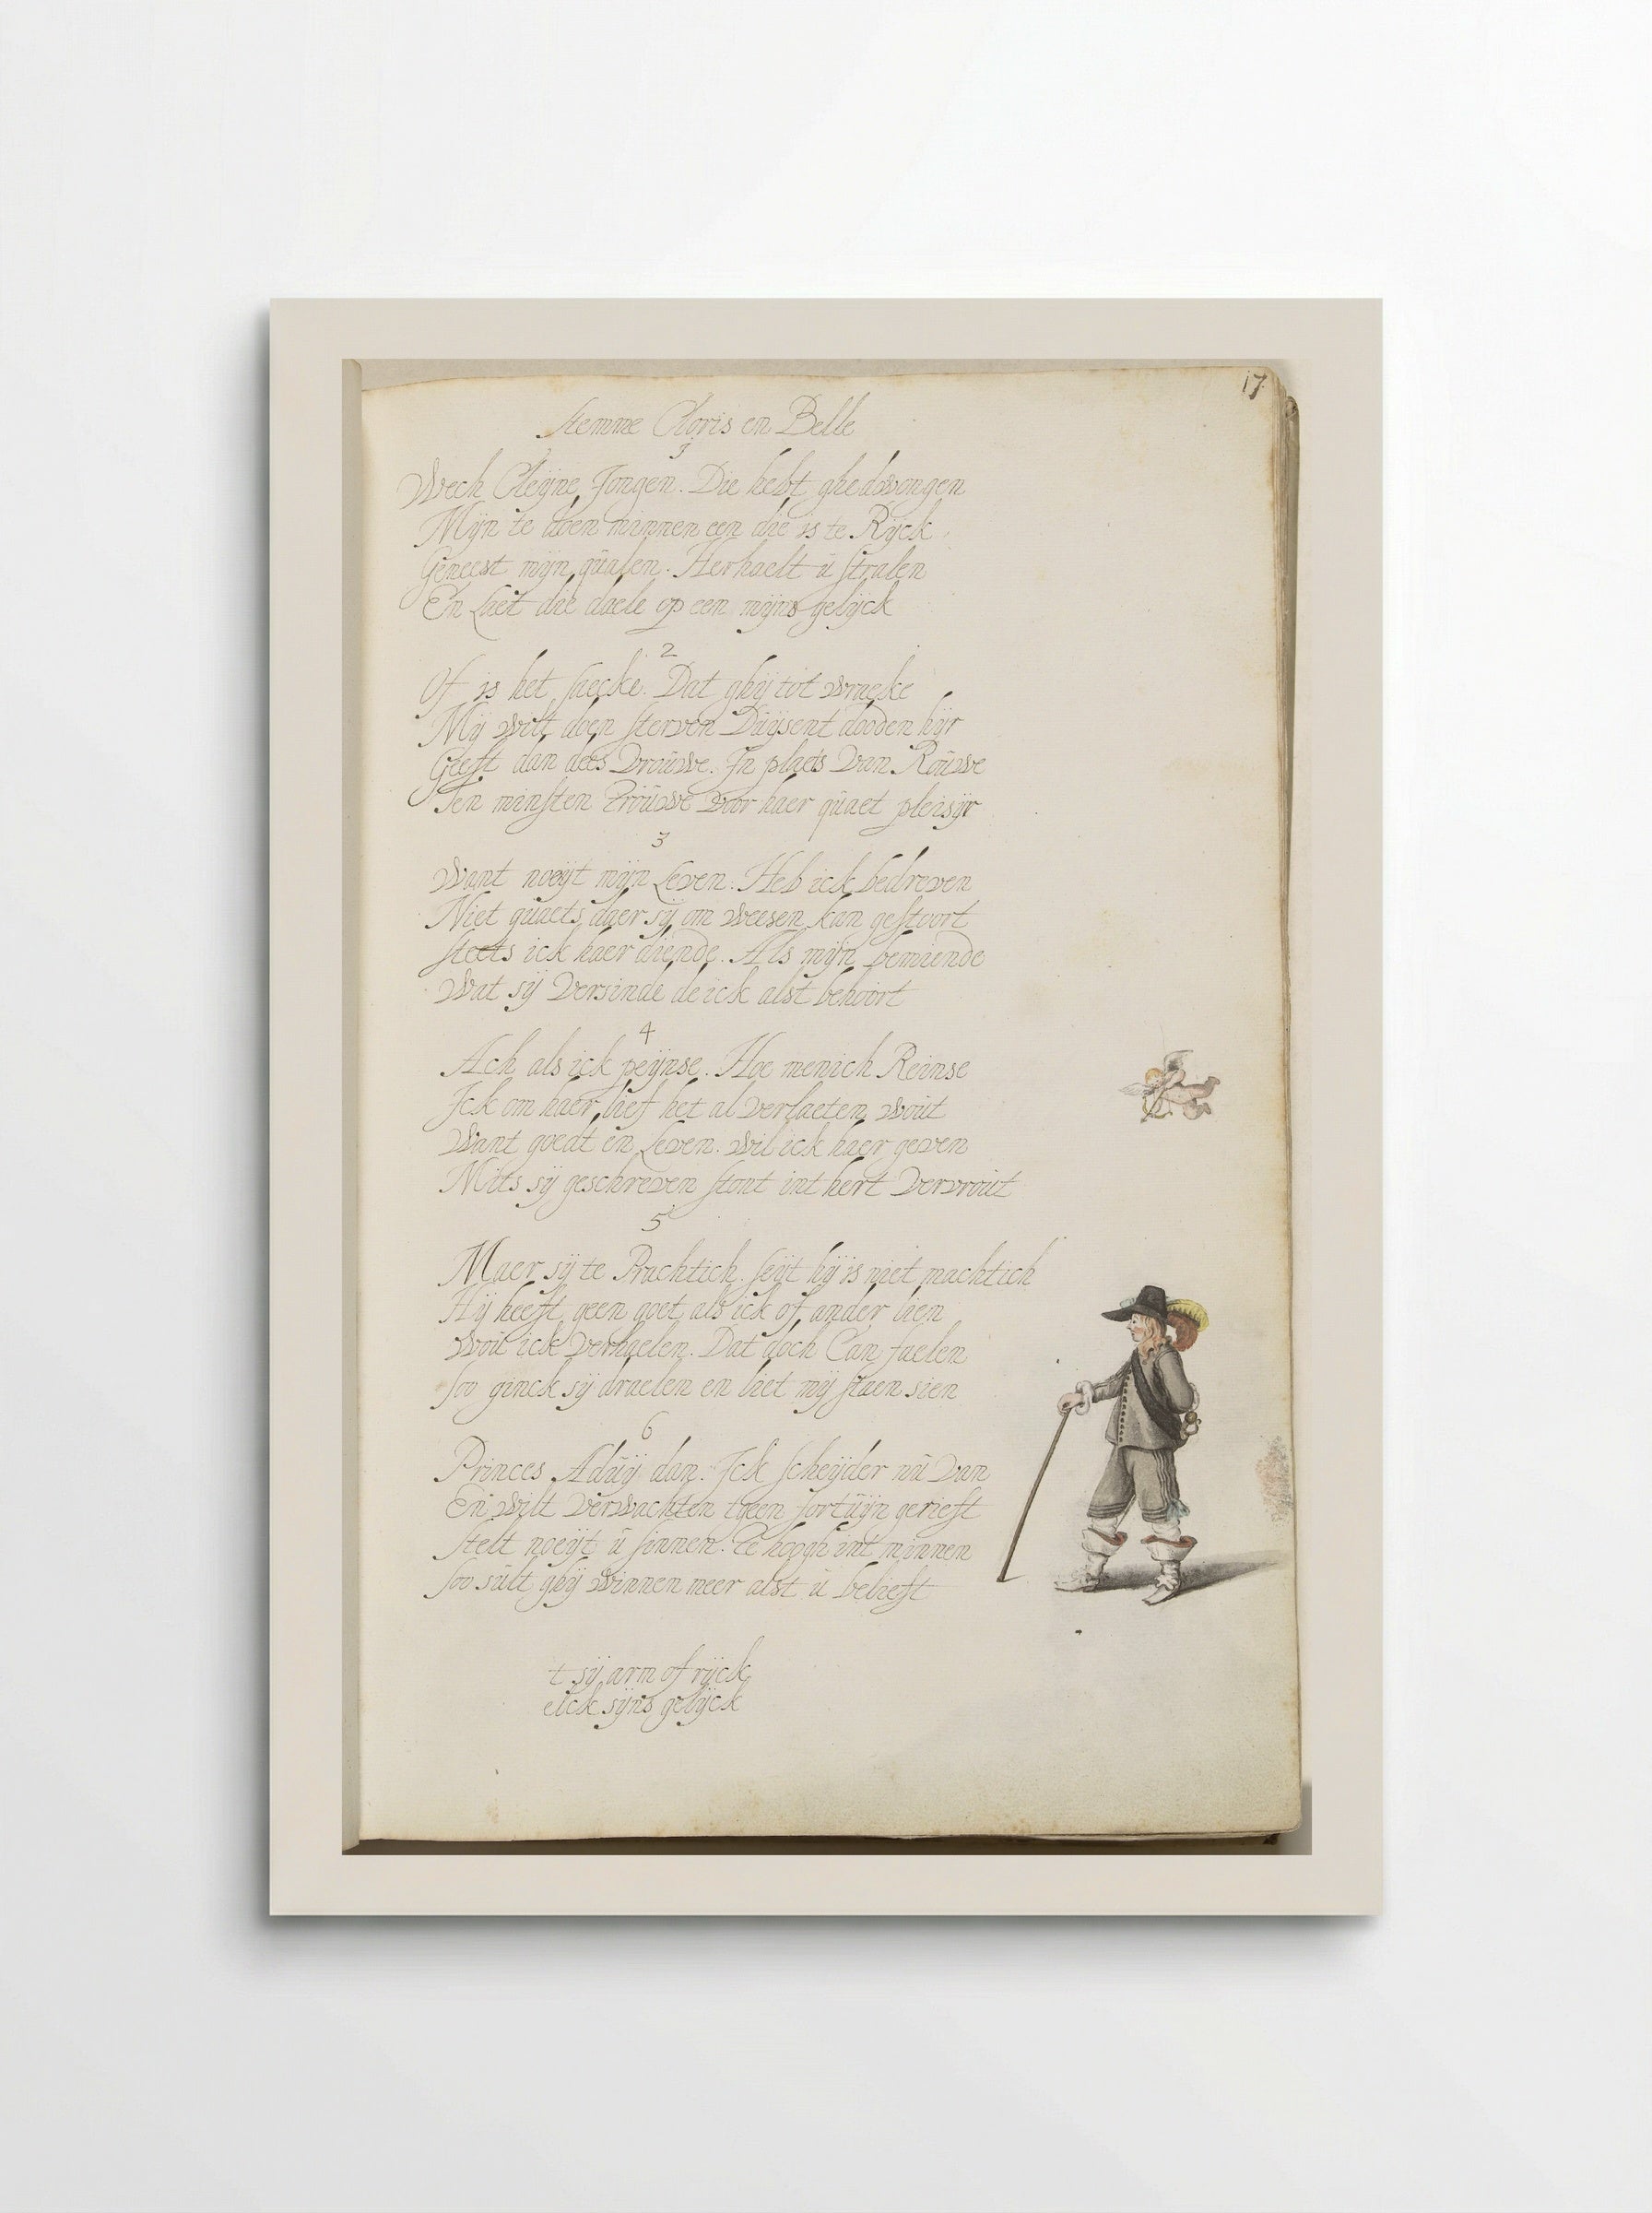 17
Stemme Cloris en Belle
1
Wech Cleÿne Jongen. Die hebt ghedwongen
Mÿn te doen minnen een die is te Rÿck
Geneest mÿn quaelen. Herhaelt ú stralen
En Laet die daele op een mÿns gelÿck
2
Of is het saecke. Dat ghÿ tot wraeke
Mÿ wilt doen sterven Dúÿsent dooden hÿr
Geeft dan dees Vroúwe. In plaets Van Roúwe
Ten minsten Troúwe Voor haer qúaet pleisÿr
3
Want noeÿt mÿn Leven. Heb ick bedreven
Niet qúaets daer sÿ om weesen kan gestoort
Steets ick haer diende. Als mÿn beminde
Wat sÿ Versinde de ick alst behoort
4
Ach als ick peÿnse. Hoe menich Reinse
Ick om haer lief het al Verlaeten woút
Want goedt en Leven. wil ick haer geven
Mits sÿ geschreven stont int hert Vervroút
5
Maer sÿ te Prachtich. seÿt hÿ is niet machtich
Hÿ heeft geen goet als ick of ander lien
Woú ick Verhaelen. Dat doch Can faelen
soo ginck sÿ draelen en liet mÿ staen sien
6
Princes Adúÿ dan. Ick scheÿder nú Van
En wilt Verwachten tgeen fortúÿn gerieft
Stelt noeÿt ú sinnen. Te hoogh int minnen
soo súlt ghÿ winnen meer alst ú belieft
t sÿ arm of rÿck
elck sÿns gelÿck